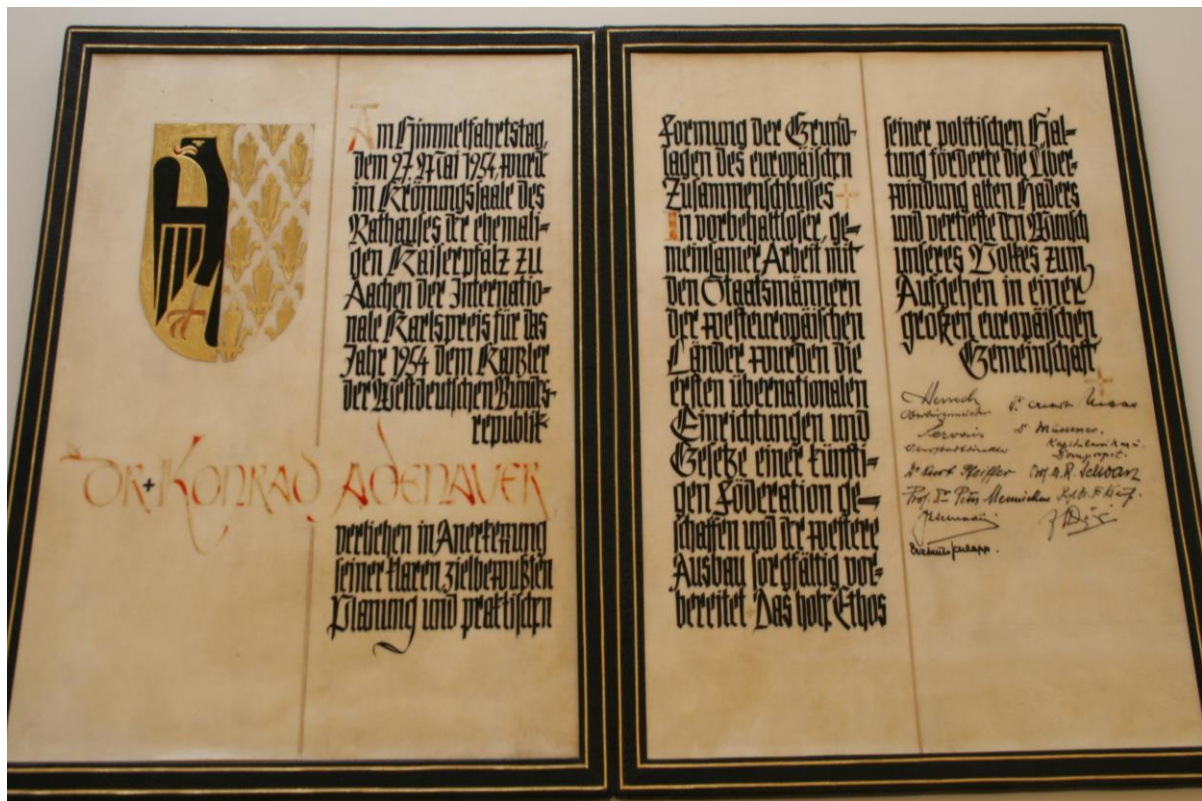 Am Himmelfahrtstag,
dem 27. Mai 1954, wurde
im Krönungssaale des
Rathauses der ehemali=
gen Kaiserpfalz zu
Aachen der Internatio=
nale Karlspreis für das
Jahr 1954 dem Kanzler
der Westdeutschen Bunds=
republik
DR + KONRAD ADENAUER
verliehen in Anerkennung
seiner klaren zielbewußten
Planung und praktischen
Formung der Grund=
lagen des europäischen
Zusammenschlusses +
In vorbehaltloser, ge=
meinsamer Arbeit mit
den Staatsmännern
der westeuropäischen
Länder wurden die
ersten übernationalen
Einrichtungen und
Gesetze einer künfti=
gen Föderation ge=
schaffen und der weitere
Ausbau sorgfältig vor=
bereitet + Das hohe Ethos
seiner politischen Hal=
tung förderte die Über=
windung alten Haders
und vertiefte den Wunsch
unseres Volkes zum
Aufgehen in einer
großen europäischen
Gemeinschaft +
Oberbürgermeister
Oberstadtdirektor
Dr Kurt Pfeiffer
Prof. Dr Peter Mennicken